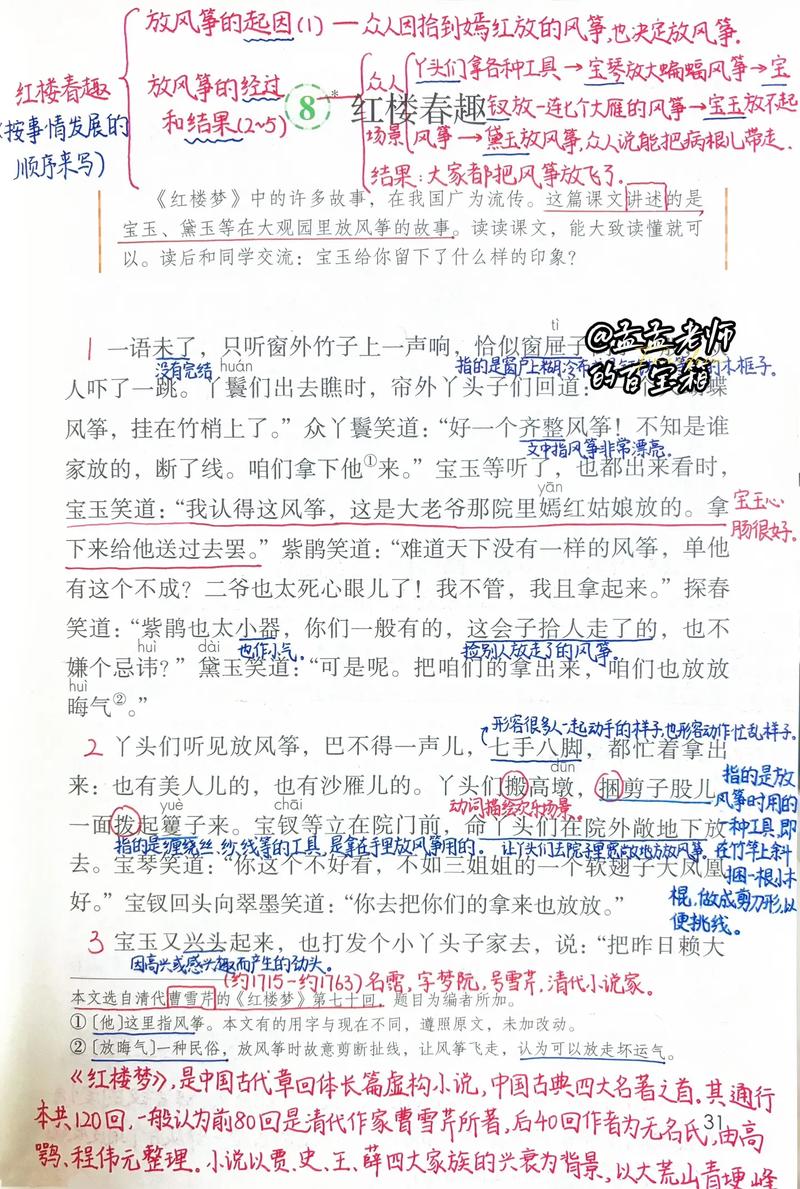 放风筝的起因(1)—众人因拾到嫣红放的风筝,也决定放风筝.
红楼春趣
(按事情发展的
顺序来写)
放风筝的经过
和结果(2~5)
众人
场景
丫头们拿各种工具→宝琴放大蝙蝠风筝→宝
钗放一连七个大雁的风筝→宝玉放不起
风筝→黛玉放风筝,众人说能把病根儿带走.
结果:大家都把风筝放飞了.
8* 红楼春趣
《红楼梦》中的许多故事，在我国广为流传。这篇课文讲述的是
宝玉、黛玉等在大观园里放风筝的故事。读读课文，能大致读懂就可
以。读后和同学交流：宝玉给你留下了什么样的印象？
@孟孟老师
的百宝箱
tì
1 一语未了，只听窗外竹子上一声响，恰似窗屉子
没有完结
huán
指的是窗户上糊冷布
的木框子。
人吓了一跳。丫鬟们出去瞧时，帘外丫头子们回道：
蝴蝶
风筝，挂在竹梢上了。”众丫鬟笑道：“好一个齐整风筝！不知是谁
文中指风筝非常漂亮.
家放的，断了线。咱们拿下他①来。”宝玉等听了，也都出来看时，
yān
宝玉笑道：“我认得这风筝，这是大老爷那院里嫣红姑娘放的。拿
宝玉心
肠很好。
下来给他送过去罢。”紫鹃笑道：“难道天下没有一样的风筝，单他
有这个不成？二爷也太死心眼儿了！我不管，我且拿起来。”探春
笑道：“紫鹃也太小器，你们一般有的，这会子拾人走了的，也不
也作小气。
捡别人放走了的风筝。
huì dài
嫌个忌讳？”黛玉笑道：“可是呢。把咱们的拿出来，咱们也放放
huì
晦气②。”
形容很多人一起动手的样子,也形容动作忙乱样子.
2 丫头们听见放风筝，巴不得一声儿，七手八脚，都忙着拿出
dūn
来：也有美人儿的，也有沙雁儿的。丫头们搬高墩，捆剪子股儿，
动词描绘欢乐场景。
指的是放
风筝时用的
一种工具,即
在竹竿上斜
捆一根小木
棍,做成剪刀形,以
便挑线。
yuè chāi
一面拨起籰子来。宝钗等立在院门前，命丫头们在院外敞地下放
指的是缠绕丝、纱、线等的工具,是拿在手里放风筝用的。
让丫头们去院子里宽敞地方放风筝.
去。宝琴笑道：“你这个不好看，不如三姐姐的一个软翅子大凤凰
好。”宝钗回头向翠墨笑道：“你去把你们的拿来也放放。”
3 宝玉又兴头起来，也打发个小丫头子家去，说：“把昨日赖大
因高兴或感兴趣而产生的劲头。
(约1715-约1763)名霑,字梦阮,号雪芹,清代小说家。
本文选自清代曹雪芹的《红楼梦》第七十回，题目为编者所加。
①〔他〕这里指风筝。本文有的用字与现在不同，遵照原文，未加改动。
②〔放晦气〕一种民俗，放风筝时故意剪断扯线，让风筝飞走，认为可以放走坏运气。
《红楼梦》,是中国古代章回体长篇虚构小说,中国古典四大名著之首。其通行
本共120回,一般认为前80回是清代作家曹雪芹所著,后40回作者为无名氏,由高
31
鹗、程伟元整理。小说以贾、史、王、薛四大家族的兴衰为背景,以大荒山青埂峰